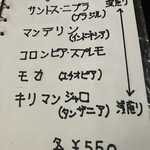 深煎り
サントス・ニブラ
(ブラジル)
マンデリン
(インドネシア)
コロンビア・スプレモ
モカ (エチオピア)
キリマンジャロ
(タンザニア)
浅煎り
各 ¥550